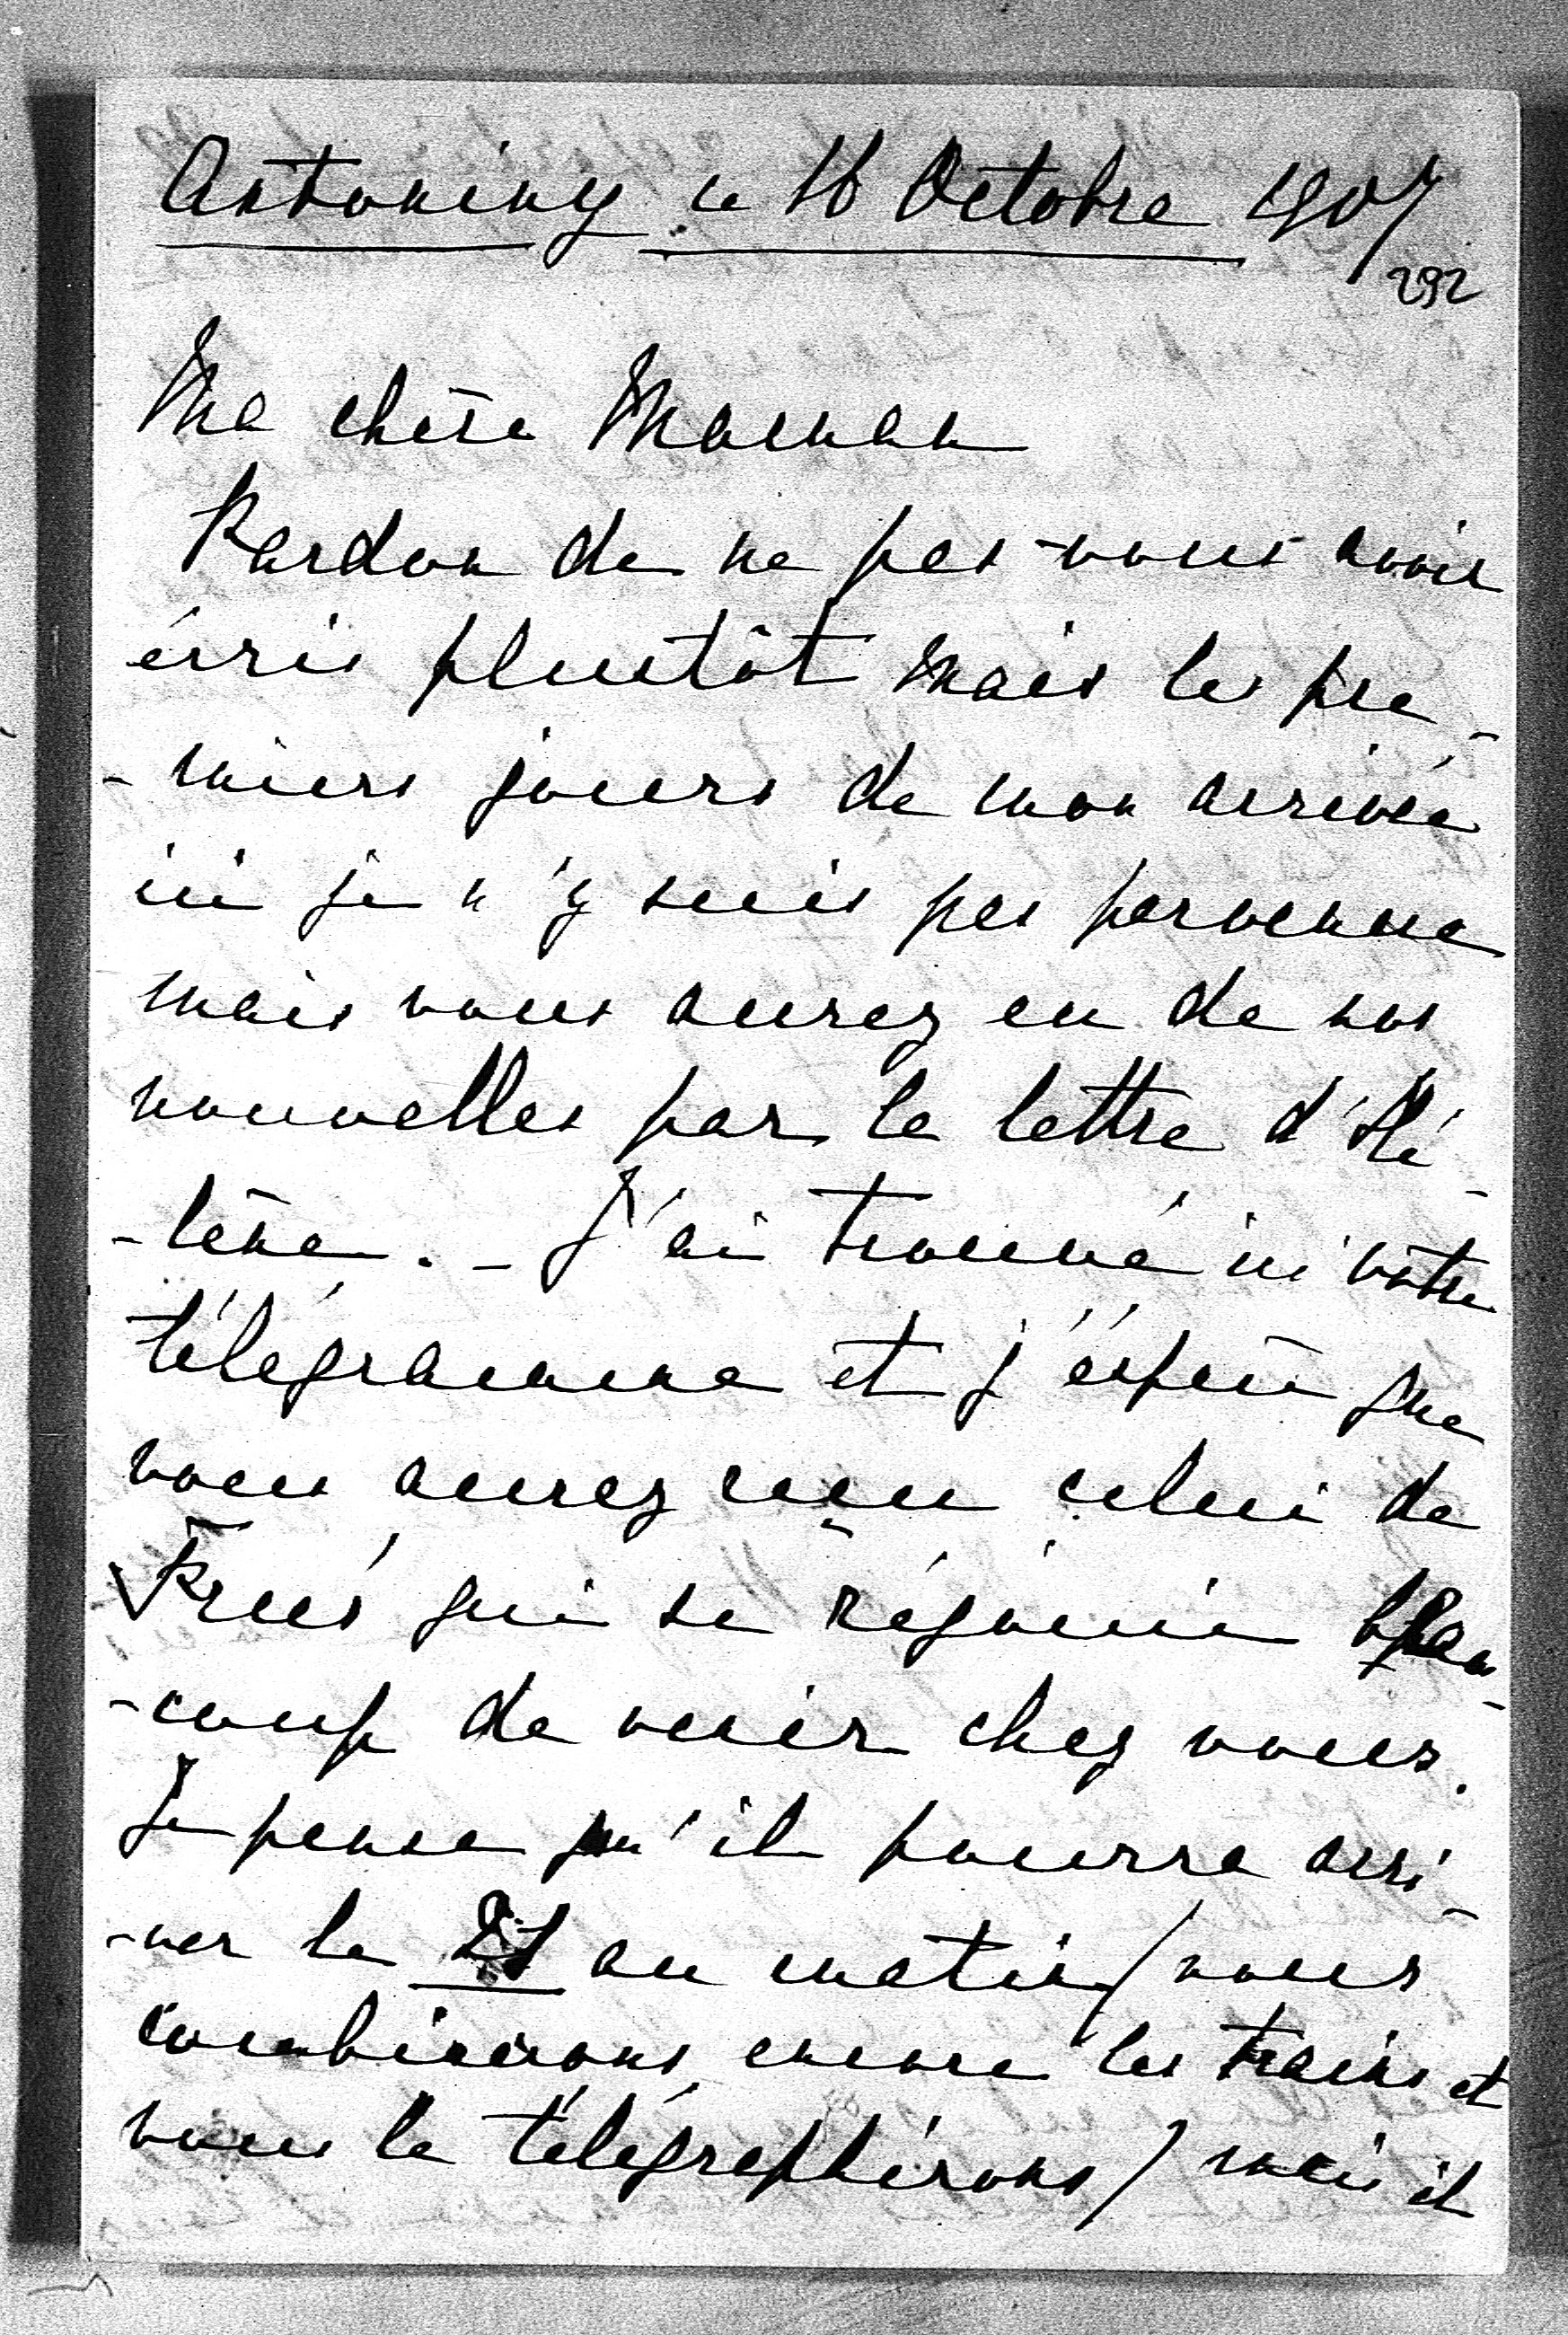 Antoniny ce 16 Octobre 1907
292
Ma chère Maman
Pardon de ne pas vous avoir
écris plustôt mais les pre-
-miers jours de mon arrivée
ici je n'y suis pas parvenue
mais vous aurez eu de nos
nouvelles par la lettre d'Hé-
-lène. - J'ai trouvé ici votre
télégramme et j'éspère que
vous aurez reçu celui de
qui se réjouie beau-
-coup de venir chez vous.
Je pense qu'il pourra arri-
-ver le 21 au matin / nous
combinerons encore les trains et
vous le télégraphirons / mais il